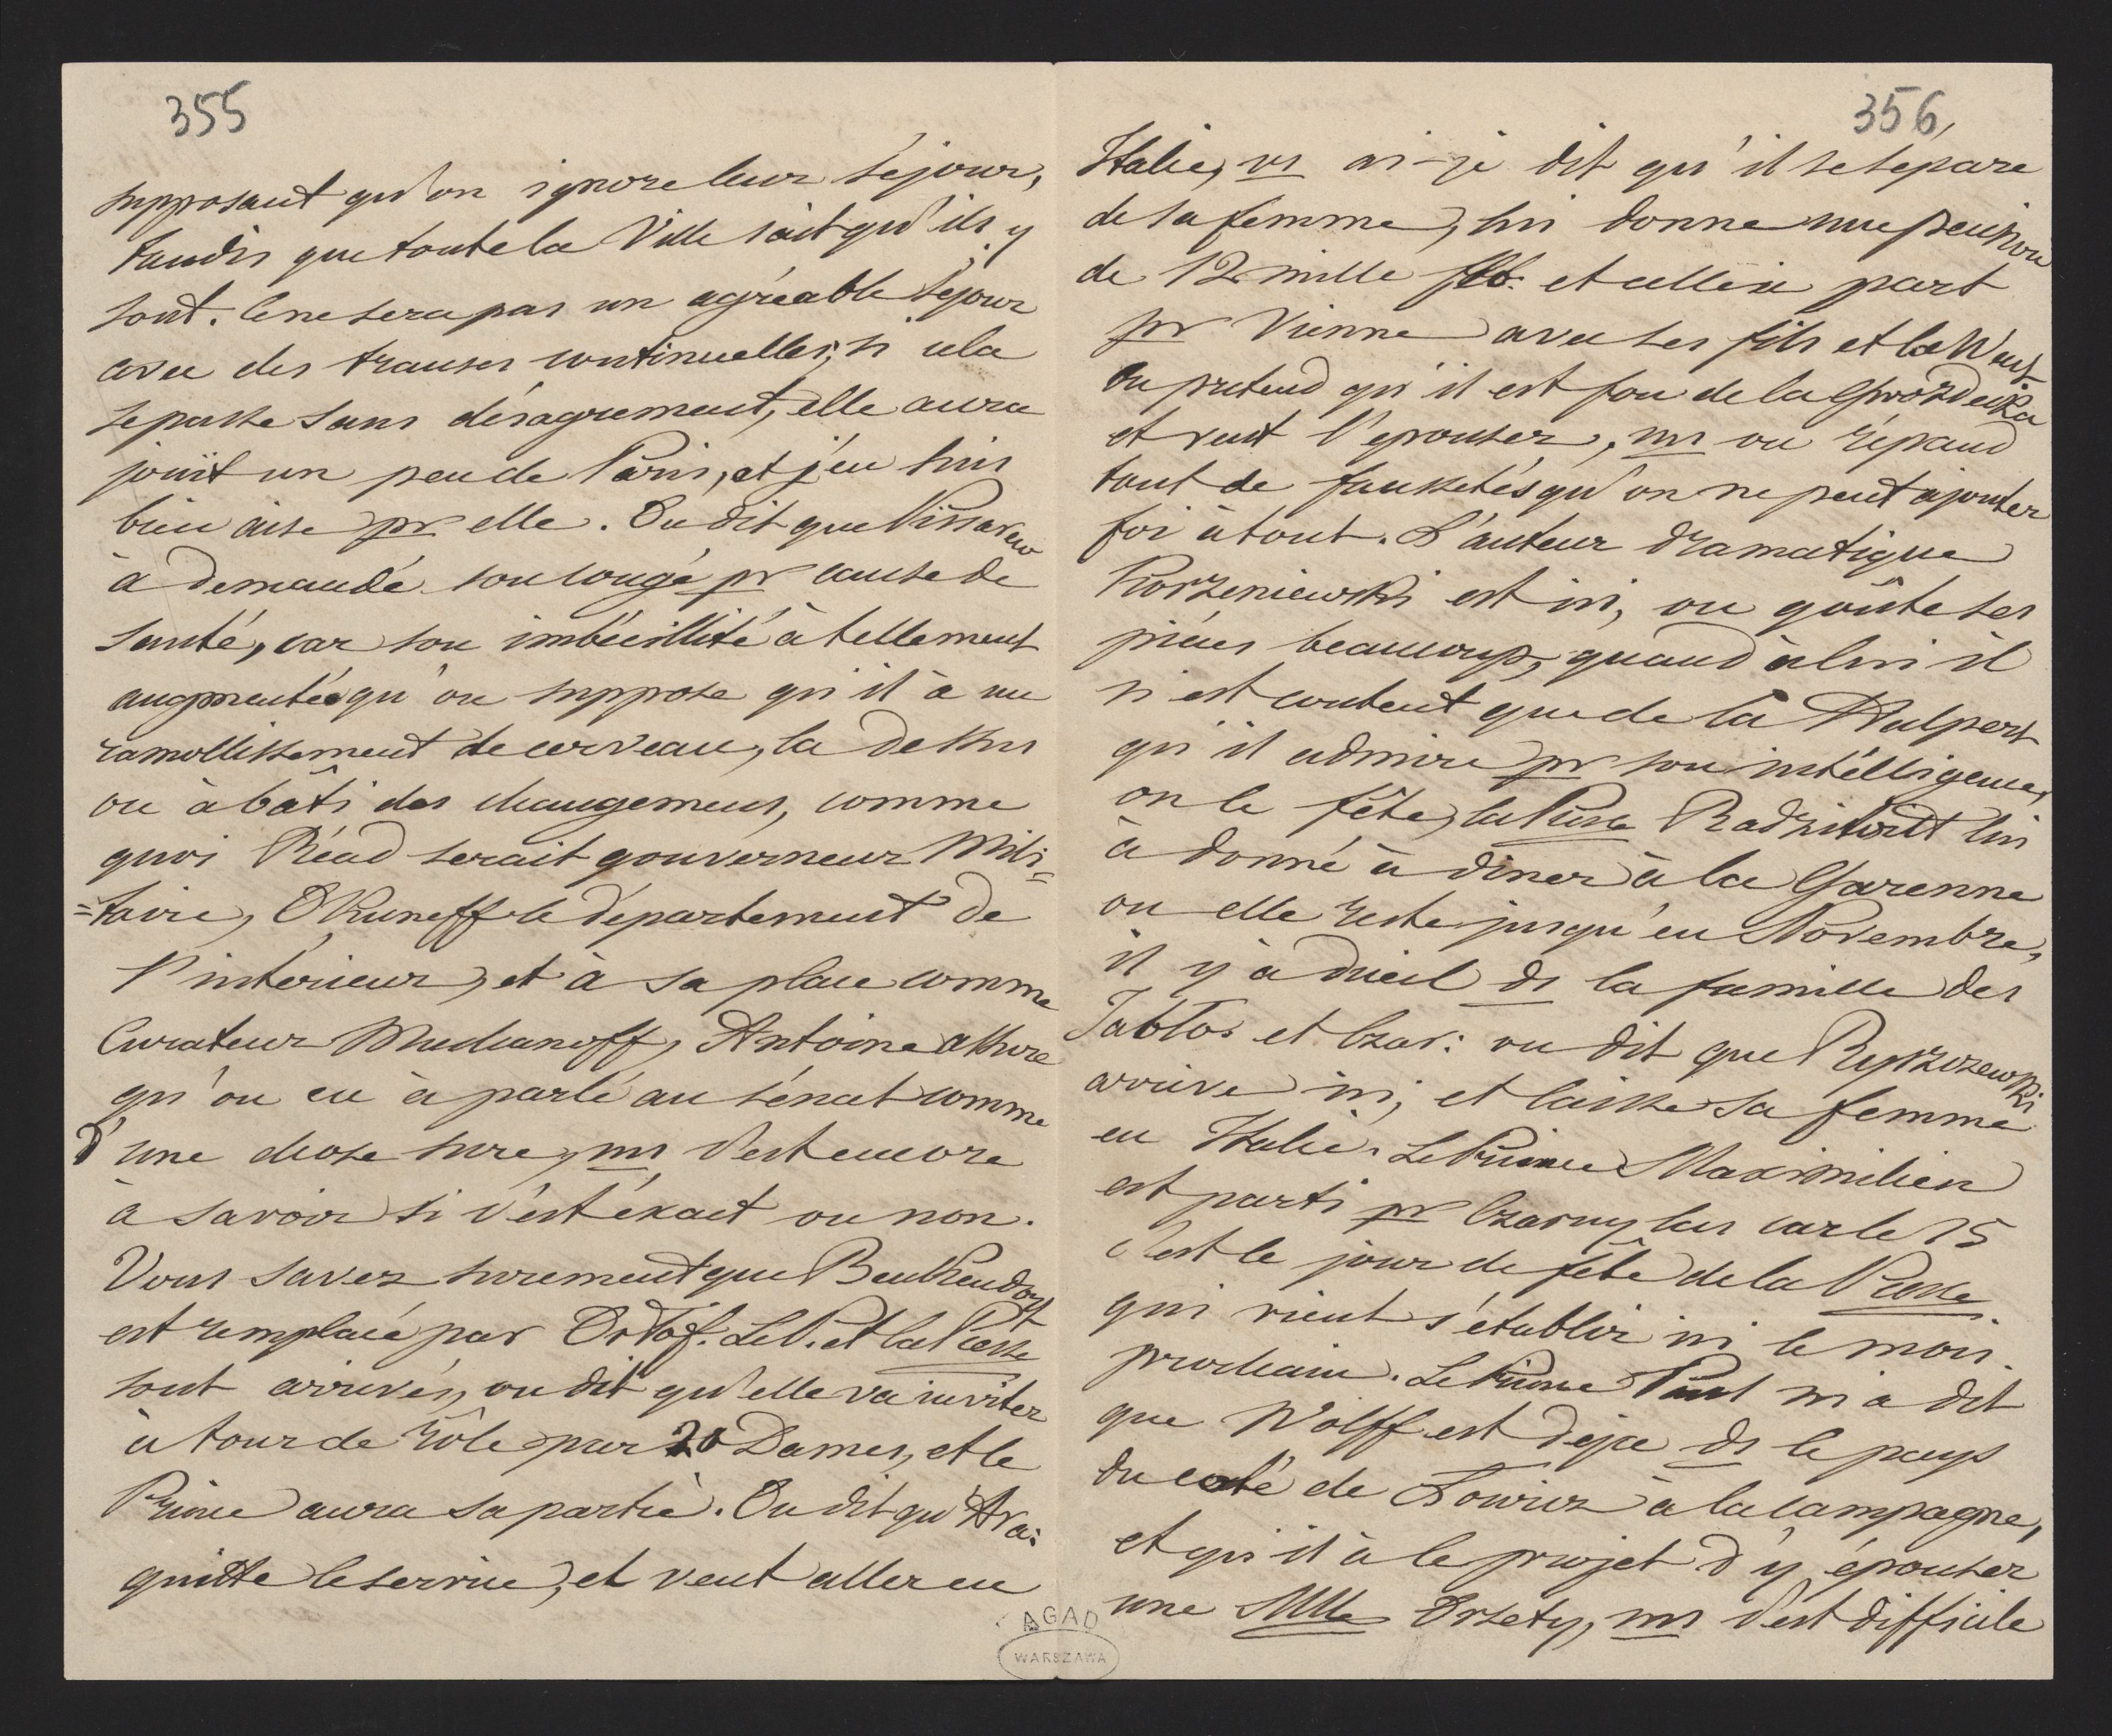 355
supposant qu'on ignore leur séjour,
tandis que toute la Ville sait qu'ils y
sont. Ce ne sera pas un agréable séjour
avec des transes continuelles, si cela
se passe sans désagrement, elle aura
jouit un peu de Paris, et j'en suis
bien aise pr elle. On dit que Pissarew
à demandé son congé pr cause de
santé, car son imbécillité à tellement
augmentée qu'on suppose qu'il à un
ramollissement de cerveau, la dessus
on à bâti des changemens, comme
quoi Réad serait gouverneur Mili=
=taire, Okuneff le département de
l'intérieur, et à sa place comme
Curateur Muchanoff, Antoine assure
qu'on en à parlé au sénat comme
d'une chose sure, ms c'est encore
à savoir si c'est éxact ou non.
Vous savez surement que Benkendorf
est remplacé par Orłof. Le P. et la Pcesse
sont arrivés, on dit qu'elle va inviter
à tour de rôle par 20 Dames, et le
Prince aura sa partie. On dit qu'Ara:
quitte le service, et veut aller en
356
Italie, vs ai-je dit qu'il se sépare
de sa femme, lui donne une pension
de 12 mille et celle ci part
pr Vienne avec ses fils et la
On pretend qu'il est fou de la Gwozdecka
et veut l'epouser, ms on répand
tant de faussetés qu'on ne peut ajouter
foi à tout. L'auteur dramatique
Korzeniewski est ici, on goûte ses
pièces beaucoup, quand à lui il
n'est content que de la Halpert
qu'il admire pr son intélligence,
on le fête, la Pcesse Radziwiłł lui
à donné à diner à la Garenne
ou elle reste jusqu'en Novembre,
il y à dueil ds la famille des
Jabło: et Czar: on dit que Ryszczewski
arrive ici, et laisse sa femme
en Italie. Le Prince Maximilien
est parti pr Czarny las car le 15
c'est le jour de fête de la Pcesse
qui vient s'établir ici le mois
prochain. Le Prince Paul m'a dit
que Wolff est deja ds le pays
du coté de Łowicz à la campagne,
et qu'il à le projet d'y épouser
une Mlle Orsety, ms c'est difficile
AGAD
WARSZAWA